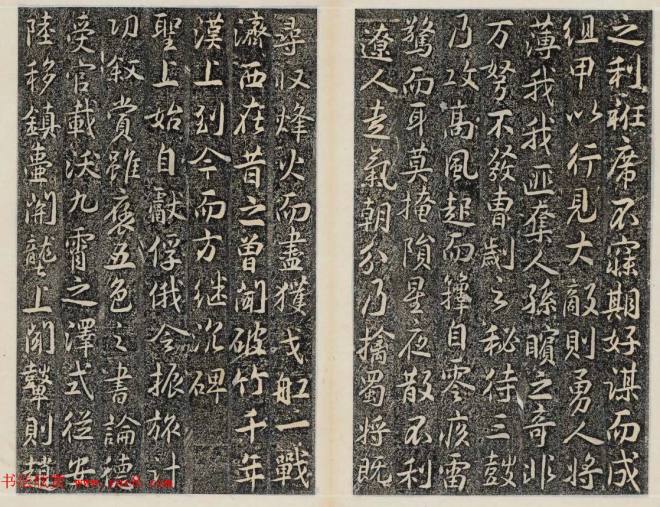 之利衽席不寐期好謀而成
組甲以行見大敵則勇人將
薄我我匪奪人孫臏之奇非
万弩不發曹劌之秘待三鼓
乃攻高風起而籜自零疾雷
驚而耳莫掩隕星夜散不利
遼人氣朝分乃擒蜀將既
尋収烽火而盡獲戈舡一戰
濟西在昔之曾聞破竹千年
漢上到今而方继沉碑
聖上始自獻俘俄令振旅計
功叙賞雖褒五色之書論德
受官載沃九霄之澤式從安
陸移鎮壺関壟上聞鼙則趙
书法欣赏 www.yac8.com